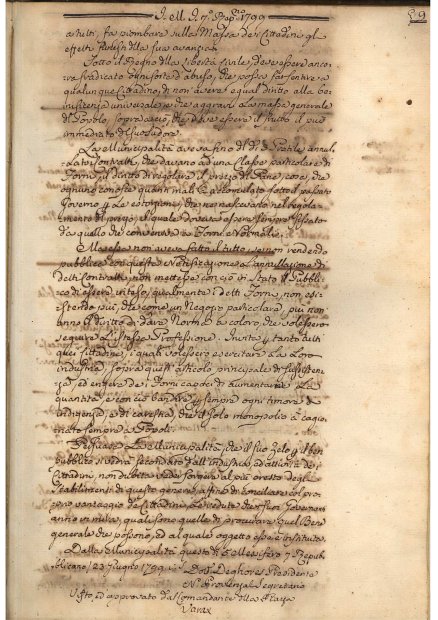 I. M. I. 7.° Rep.no 1799
59
artelti, fa piombare sulla Massa dei Cittadini gl'
effetti
Sotto il Regno della libertà civile deve essere ancora
sradicato ogni sorte d'abuso, che possa far sentire a
qualunque Cittadino, di non avere egual diritto alla be
universale, e che aggravi la massa generale
del Popolo, sopra ciò, che deve essere il frutto il più
immediato del suo sudore.
La Municipalità aveva fino di di 3 Pratile annul
lati i Contratti, che davano ad una Classe particolare di
Forni, il diritto di regolare il prezzo di Pane, cosa, che
ognuno conosce quanti mali ha sotto il passato
Governo, e le estorzioni, che ne nascevano nel regola
mento di prezzo, il quale doveva essere sempre fissato
da quello che conveniva a Forni Normali.
Ma essa non aveva fatto il tutto, se non rendendo
pubblica con questa Notificazione l'annullazione di
detti Contratti, non mettesse con ciò in stato il Pubbli
co di essere inteso, qualmente i detti Forni, non esi
stendo più, che come un Negozio particolare, più non
anno il diritto di dare Norma a coloro, che volessero
seguire l'istessa Professione. Invita pertanto tutti
quei Cittadini, i quali volessero esercitare la loro
industria, sopra quest'articolo principale di sussisten
za, ed erigere dei Forni capaci di aumentarne la
quantità, e con ciò bandire per sempre ogni timore d'
indigenza, e di carestia, che il solo monopolio à cagio
nato sempre a Popoli.
Persuasa la Municipalità, che il suo zelo per il ben
pubblico si vedrà secondato dall'industria, ed attività dei
Cittadini, non dubita veder sorgere al più presto degli
stabilimenti di questo genere, affine di conciliare col pro
prio vantaggio dei Cittadini, le vedute che i suoi Governanti
anno in mira, quali sono quelle di procurare quel Bene
generale che possono, ed al quale oggetto essi è instituita.
Dalla Municipalità questo di 5 Messifero 7. Repub
blicano / 23 Giugno 1799.
Deghores Presidente
N. Provenzal Segretario
Visto ed approvato dal Comandante della Piazza
Varax